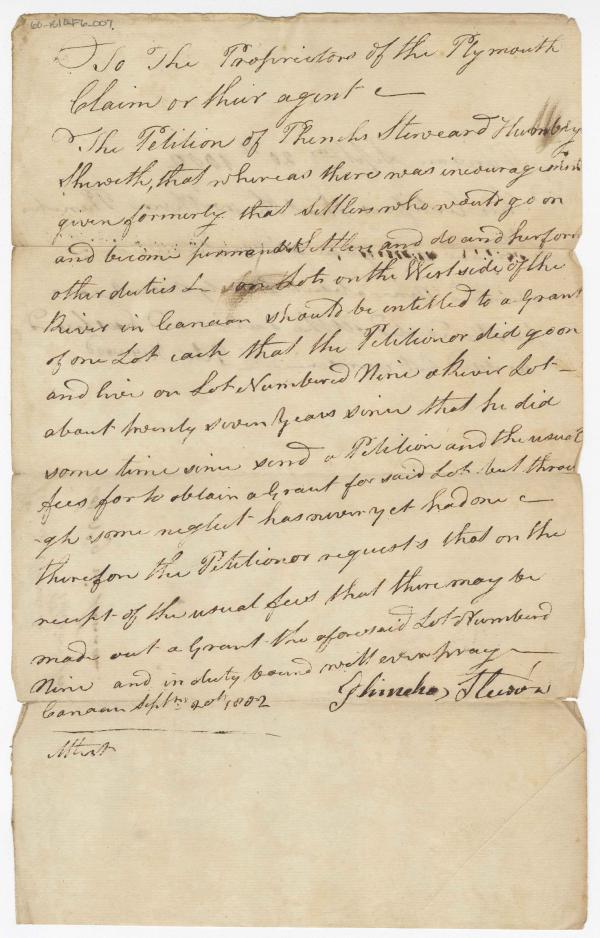 To The Proprietors of the Plymouth
Claim or their agent
The Petition of Phenehs Steweard Humbly
Sheweth, that whereas there was incouragement
given formerly that Settlers who wouts go on
and become permanent Settlers and do and perform
other duties &c on Lots on the West side of the
River in Canaan should be entitled to a Grant
of one Lot each that the Petitionor did go on
and live on Lot Numbered Nine a River Lot
about twenty seven years since that he did
some time since send a Petition and the usual
fees for to obtain a Grant for said Lot but throu
gh some neglect has never yet had one
therefore the Petitionor requests that on the
receipt of the usual fees that there may be
made out a Grant the aforesaid Lot Numberd
Nine and in duty bound will ever pray
Canaan Septr 20th 1802
Phinehas Steward
Attest